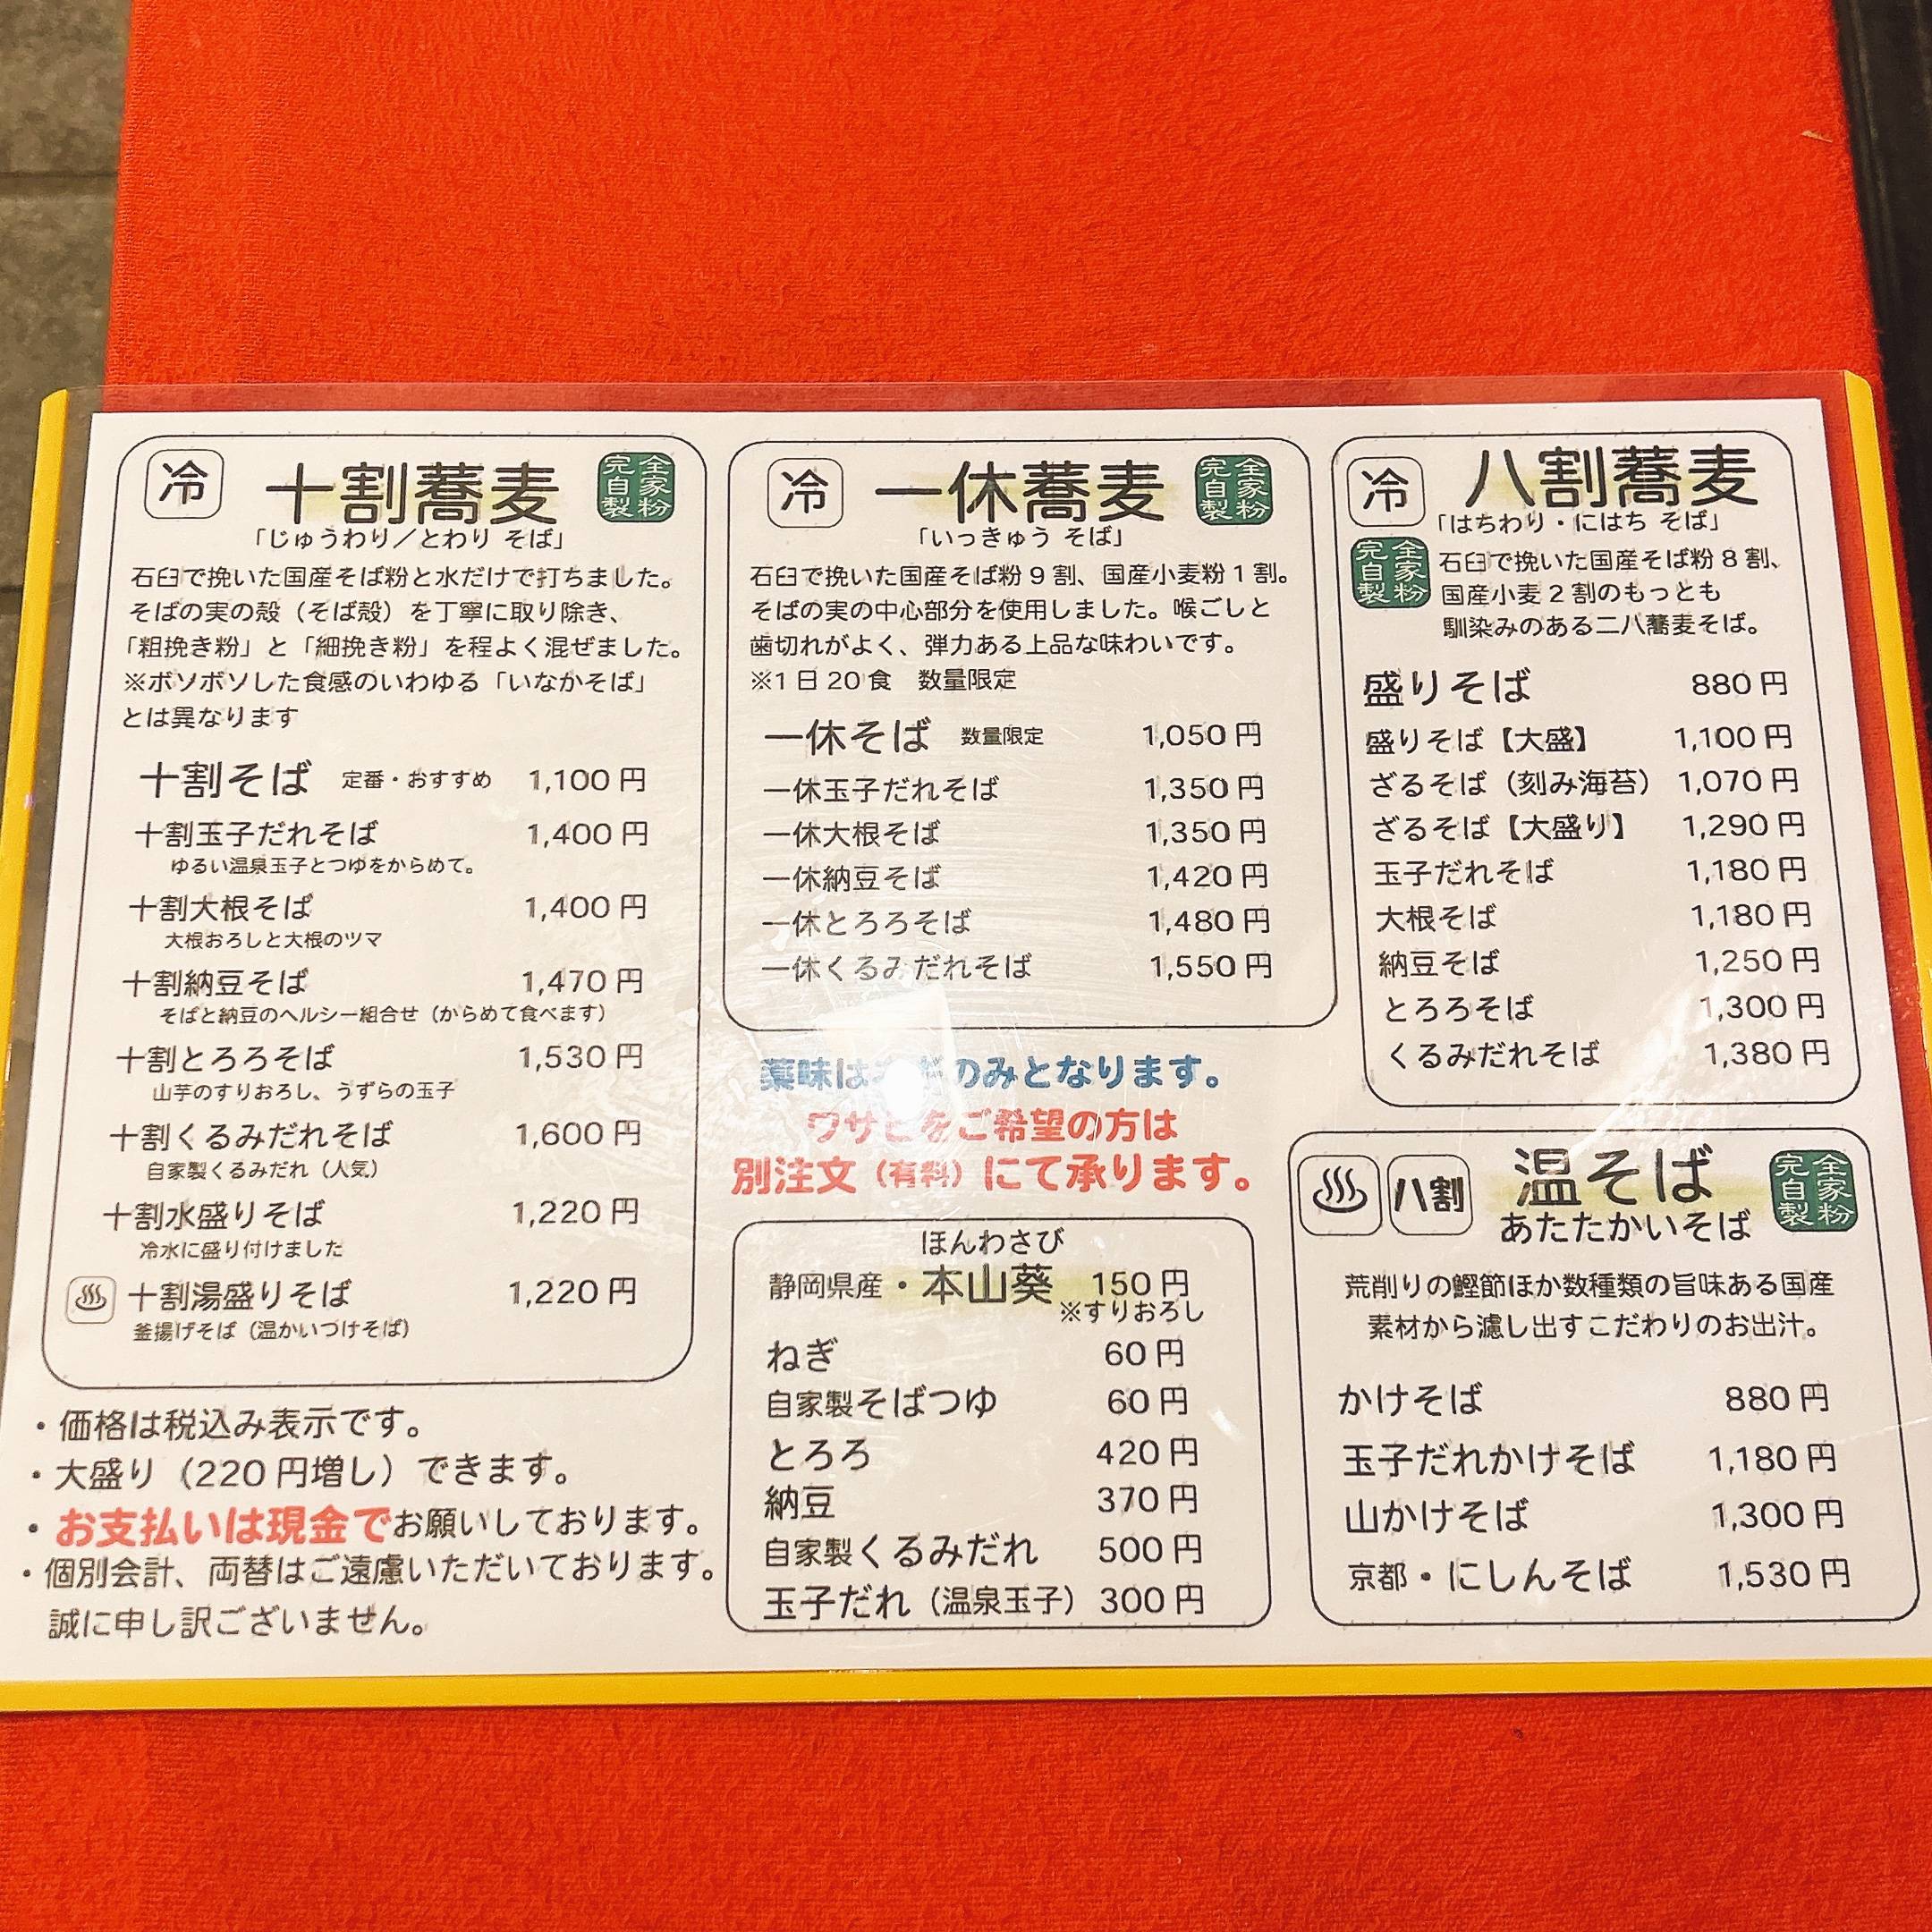 冷
十割蕎麦
完全自家製粉
「じゅうわり／とわり そば」
石臼で挽いた国産そば粉と水だけで打ちました。
そばの実の殻（そば殻）を丁寧に取り除き、
「粗挽き粉」と「細挽き粉」を程よく混ぜました。
※ボソボソした食感のいわゆる「いなかそば」
とは異なります
十割そば 定番・おすすめ 1,100円
十割玉子だれそば 1,400円
ゆるい温泉玉子とつゆをからめて。
十割大根そば 1,400円
大根おろしと大根のツマ
十割納豆そば 1,470円
そばと納豆のヘルシー組合せ（からめて食べます）
十割とろろそば 1,530円
山芋のすりおろし、うずらの玉子
十割くるみだれそば 1,600円
自家製くるみだれ（人気）
十割水盛りそば 1,220円
冷水に盛り付けました
十割湯盛りそば 1,220円
釜揚げそば（温かいつけそば）
・価格は税込み表示です。
・大盛り（220円増し）できます。
・お支払いは現金でお願いしております。
・個別会計、両替はご遠慮いただいております。
誠に申し訳ございません。
冷
一休蕎麦
完全自家製粉
「いっきゅう そば」
石臼で挽いた国産そば粉9割、国産小麦粉1割。
そばの実の中心部分を使用しました。喉ごしと
歯切れがよく、弾力ある上品な味わいです。
※1日20食 数量限定
一休そば 数量限定 1,050円
一休玉子だれそば 1,350円
一休大根そば 1,350円
一休納豆そば 1,420円
一休とろろそば 1,480円
一休くるみだれそば 1,550円
薬味は のみとなります。
ワサビをご希望の方は
別注文（有料）にて承ります。
ほんわさび
静岡県産・本山葵 150円
※すりおろし
ねぎ 60円
自家製そばつゆ 60円
とろろ 420円
納豆 370円
自家製くるみだれ 500円
玉子だれ（温泉玉子） 300円
冷
八割蕎麦
「はちわり・にはち そば」
完全自家製粉
石臼で挽いた国産そば粉8割、
国産小麦2割のもっとも
馴染みのある二八蕎麦そば。
盛りそば 880円
盛りそば【大盛】 1,100円
ざるそば（刻み海苔） 1,070円
ざるそば【大盛り】 1,290円
玉子だれそば 1,180円
大根そば 1,180円
納豆そば 1,250円
とろろそば 1,300円
くるみだれそば 1,380円
八割
温そば
完全自家製粉
あたたかいそば
荒削りの鰹節ほか数種類の旨味ある国産
素材から濾し出すこだわりのお出汁。
かけそば 880円
玉子だれかけそば 1,180円
山かけそば 1,300円
京都・にしんそば 1,530円